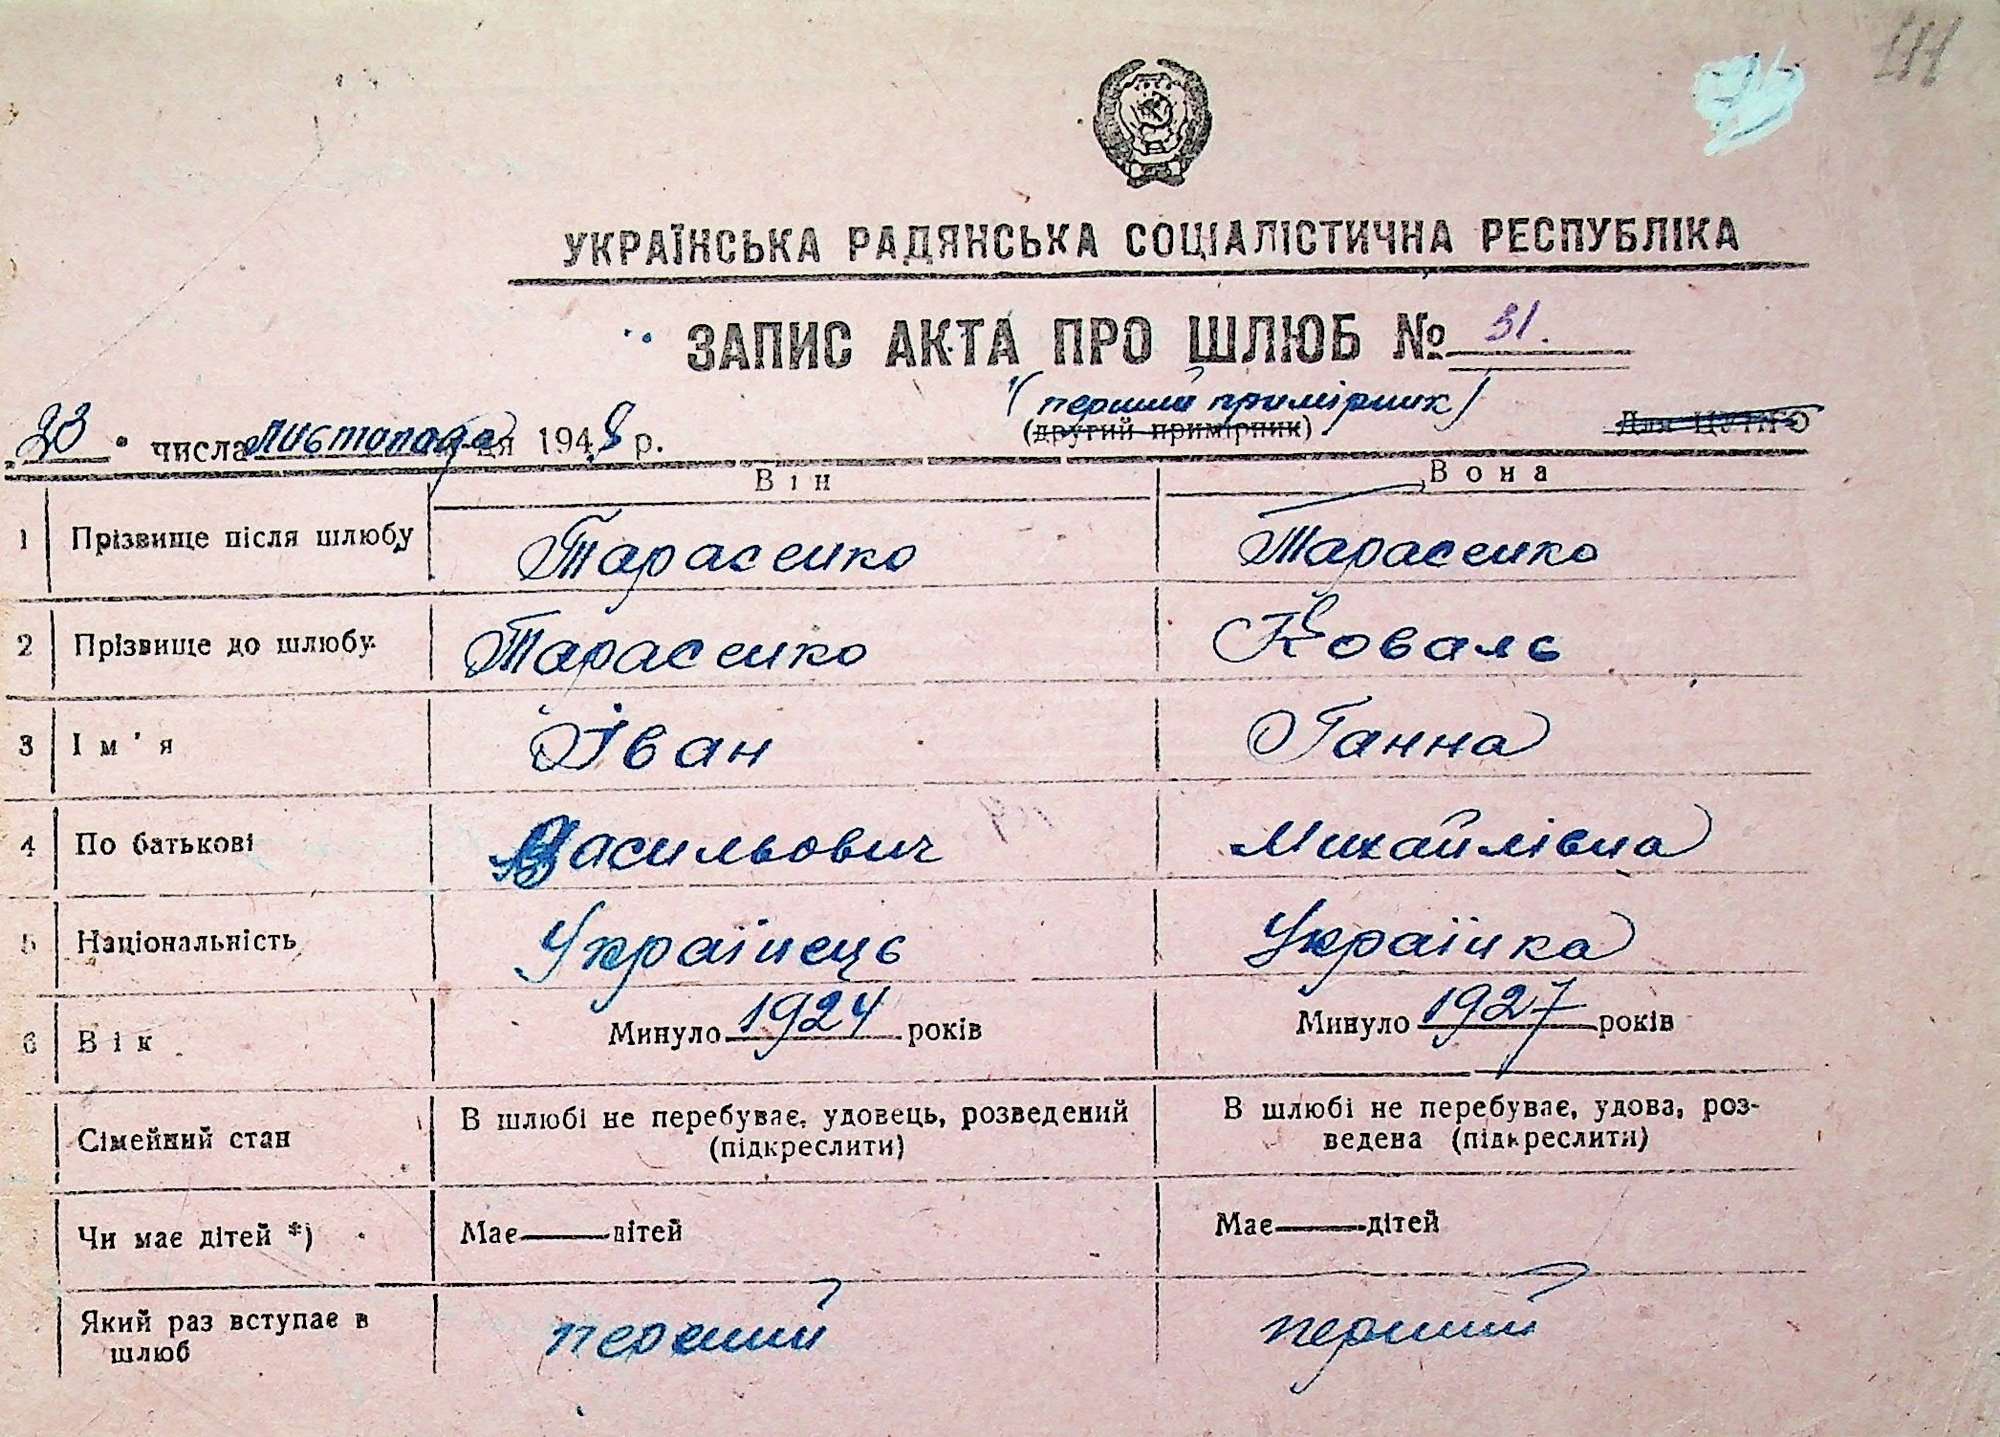 УКРАЇНСЬКА РАДЯНСЬКА СОЦІАЛІСТИЧНА РЕСПУБЛІКА
ЗАПИС АКТА ПРО ШЛЮБ № 31.
(перший примірник)
"23" числа листопада ця 1948 р. (другий примірник) Для ЦУНГО
Він Вона
1 Прізвище після шлюбу Тарасенко Тарасенко
2 Прізвище до шлюбу Тарасенко Коваль
3 Ім'я Іван Ганна
4 По батькові Васильович Михайлівна
5 Національність Українець Українка
6 Вік Минуло 1924 років Минуло 1927 років
Сімейний стан В шлюбі не перебуває, удовець, розведений (підкреслити) В шлюбі не перебуває, удова, роз-
ведена (підкреслити)
Чи має дітей *) Має дітей Має дітей
Який раз вступає в шлюб перший перший